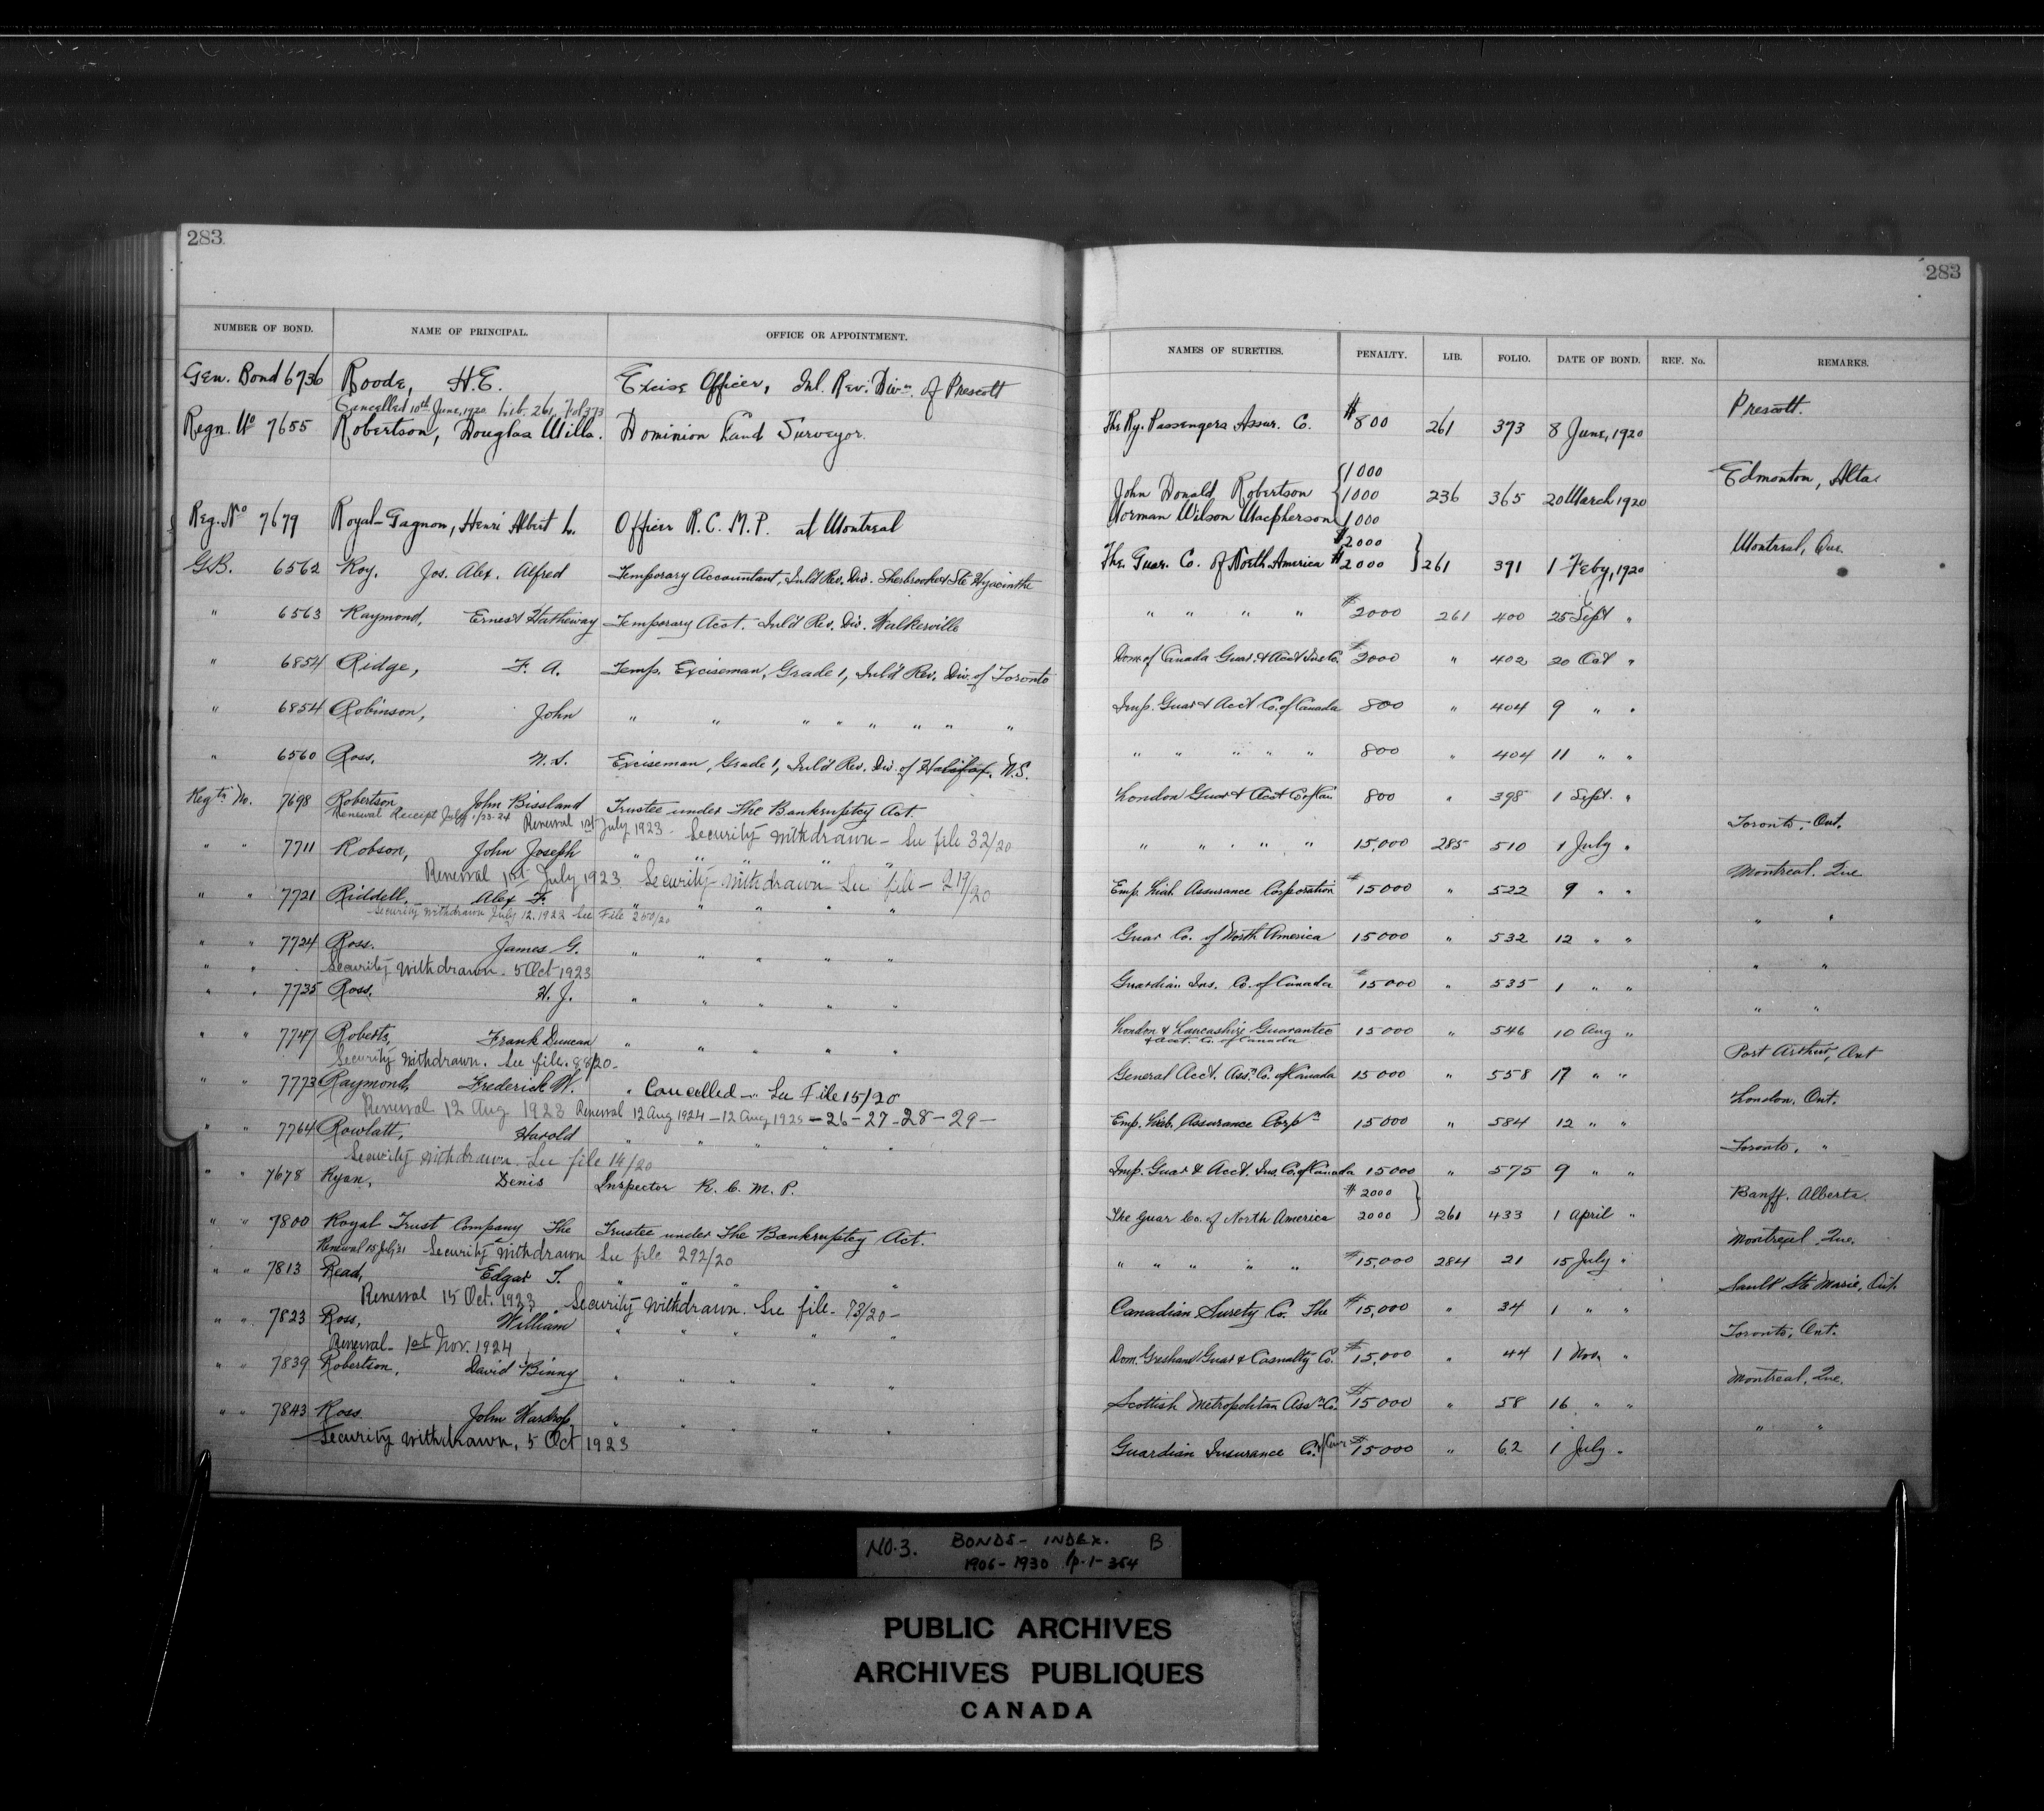 283
NUMBER OF BOND. NAME OF PRINCIPAL. OFFICE OR APPOINTMENT.
Gen. Bond 6736 Roode, H.E. Excise Officer, Inl. Rev. Divn. of Prescott
Cancelled 10th June, 1920 Lib. 261 Fol 373
Regn. No 7655 Robertson, Douglas Willa. Dominion Land Surveyor.
Reg. No 7679 Royal-Gagnon, Henri Albert L. Officer R.C.M.P. at Montreal
G.B. 6562 Roy, Jos. Alex. Alfred Temporary Accountant, Inl'd Rev. Div. Sherbrooke & Ste Hyacinthe
" 6563 Raymond, Ernest Hatheway Temporary Acct. Inl'd Rev. Div. Walkerville
" 6854 Ridge, F. A. Temp. Exciseman, Grade 1, Inl'd Rev. Div. of Toronto
" 6854 Robinson, John " " " " " " " "
" 6560 Ross, N.S. Exciseman, Grade 1, Inl'd Rev. Div. of Halifax, N.S.
Regtn No. 7698 Robertson John Bissland Trustee under The Bankruptcy Act.
Renewal Receipt July 1/23-24 Renewal 1st July 1923 - Security withdrawn - See file 32/20
" " 7711 Robson, John Joseph " " " " "
Renewal 1st July 1923. Security withdrawn See file - 217/20
" " 7721 Riddell, Alex F. " " " " "
Security withdrawn July 12, 1922 See File 250/20
" " 7724 Ross, James G. " " " " "
" " Security withdrawn. 5 Oct 1923
" " 7735 Ross, H. J. " " " " "
" " 7747 Roberts, Frank Duncan " " " " "
Security withdrawn. See file. 88/20-
" " 7773 Raymond, Frederick W. " Cancelled - See File 15/20
Renewal 12 Aug. 1923 Renewal 12 Aug 1924 - 12 Aug 1925 - 26 - 27 - 28 - 29 -
" " 7764 Rowlatt, Harold " " " " "
Security withdrawn. See file 14/20
" " 7678 Ryan, Denis Inspector R. C. M. P.
" " 7800 Royal Trust Company The Trustee under The Bankruptcy Act.
Renewal 15 July 21 Security withdrawn See file 292/20
" " 7813 Read, Edgar T. " " " " "
Renewal 15 Oct. 1923. Security withdrawn. See file - 73/20 -
" " 7823 Ross, William " " " " "
Renewal - 1st Nov. 1924
" " 7839 Robertson, David Binny " " " " "
" " 7843 Ross John Wardrop " " " " "
Security withdrawn, 5 Oct 1923
283
NAMES OF SURETIES. PENALTY. LIB. FOLIO. DATE OF BOND. REF. No. REMARKS.
Prescott.
The Ry. Passengers Assur. Co. $800 261 373 8 June, 1920
1000 Edmonton, Alta
John Donald Robertson 1000 236 365 20 March 1920
Norman Wilson Macpherson 1000
$2000 Montreal, Que.
The Guar. Co. of North America $2000 261 391 1 Feby, 1920
" " " " $2000 261 400 25 Sept "
Dom. of Canada Guar. & Acct Ins Co. $2000 " 402 20 Oct "
Imp. Guar & Acct Co. of Canada 800 " 404 9 " "
" " " " " 800 " 404 11 " "
London Guar & Acct Co of Can 800 " 398 1 Sept. "
Toronto, Ont.
" " " " " 15,000 285 510 1 July "
Montreal, Que
Emp. Liab. Assurance Corporation $15000 " 522 9 " "
" "
Guar Co. of North America 15000 " 532 12 " "
" "
Guardian Ins. Co. of Canada $15000 " 535 1 " "
" "
London & Lancashire Guarantee 15000 " 546 10 Aug "
& Acct. Co. of Canada
Port Arthur, Ont
General Acct. Assn. Co. of Canada 15000 " 558 17 " "
London, Ont.
Emp. Liab. Assurance Corpn 15000 " 584 12 " "
Toronto, "
Imp. Guar & Acct. Ins. Co. of Canada 15000 " 575 9 " "
$2000 Banff, Alberta
The Guar Co. of North America 2000 261 433 1 April "
Montreal, Que.
" " " " " $15,000 284 21 15 July "
Sault Ste Marie, Ont.
Canadian Surety Co. The $15,000 " 34 1 " "
Toronto, Ont.
Dom. Gresham Guar & Casualty Co. $15,000 " 44 1 Nov. "
Montreal, Que.
Scottish Metropolitan Assn Co. $15000 " 58 16 " "
" "
Guardian Insurance Co. of Can $15000 " 62 1 July "
NO.3. BONDS - INDEX. B
1906-1930 p.1-364
PUBLIC ARCHIVES
ARCHIVES PUBLIQUES
CANADA